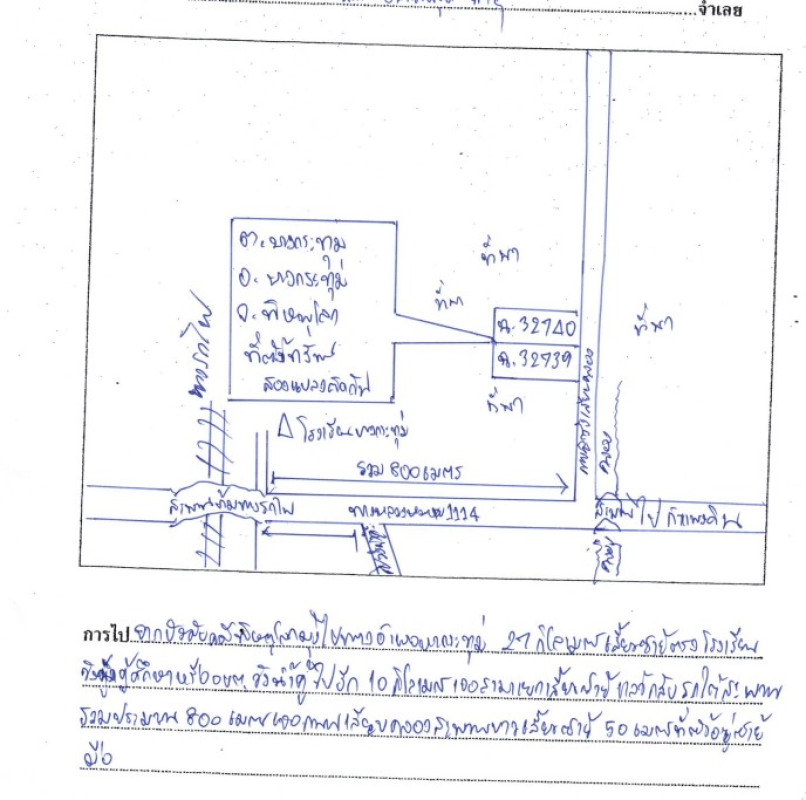 จำเลย
ต.บางกระทุ่ม
อ.บางกระทุ่ม
จ.พิษณุโลก
ที่ตั้งทรัพย์
สองแปลงติดกัน
ที่นา
ที่นา
ฉ.32740
ฉ.32739
ที่นา
ที่นา
ทางรถไฟ
โรงเรียนบางกระทุ่ม
รวม 800 เมตร
ทางหลวงหมายเลข 1114
สะพานข้ามทางรถไฟ
คลอง
สะพาน
ไป กำแพงดิน
การไป จาก พิษณุโลกมุ่งไปทางอำเภอบางกระทุ่ม 27 กิโลเมตร เลี้ยวซ้ายตรงโรงเรียน
10 กิโลเมตร เจอสามแยกเลี้ยวซ้าย แล้วกลับรถใต้สะพาน
รวมประมาณ 800 เมตร เจอถนนเลียบคลอง เลี้ยวซ้าย 50 เมตร ที่ตั้งอยู่ซ้าย
มือ